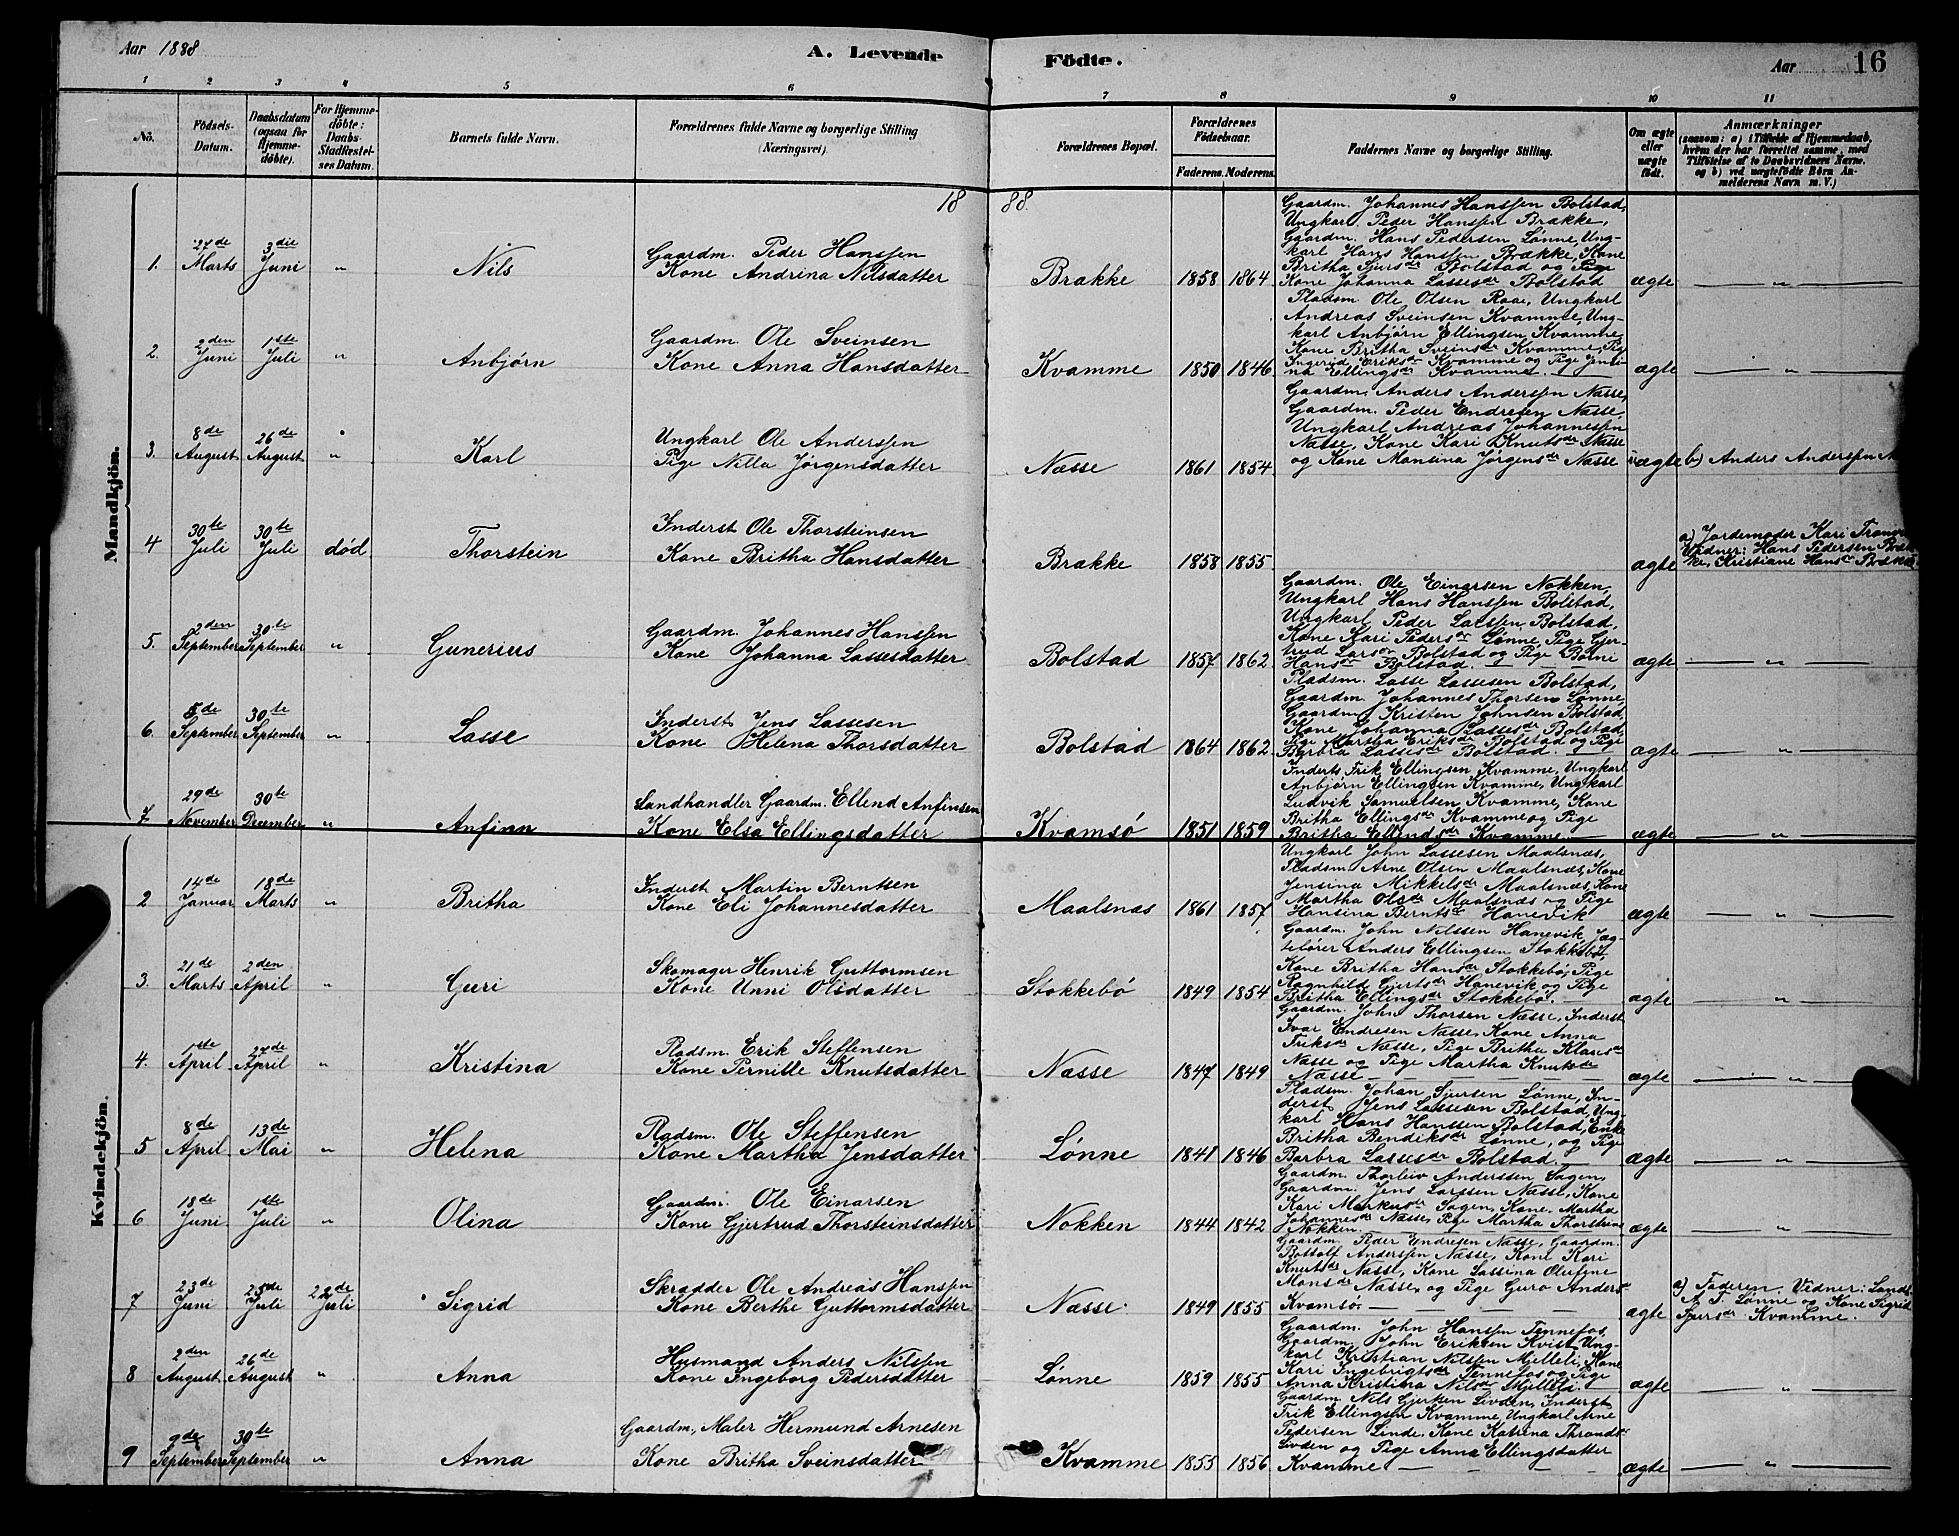 Aar 1888
A. Levende Födte.
Aar
16
1 2 3 4 5 6 7 8 9 10 11
No.
Födsels-Datum.
Daabsdatum (ogsaa for Hjemmedöbte).
For Hjemmedöbte: Daabs-Stadfæstelses Datum.
Barnets fulde Navn.
Forældrenes fulde Navne og borgerlige Stilling (Næringsvei).
Forældrenes Bopæl.
Forældrenes Födselsaar.
Faderens. Moderens.
Faddernes Navne og borgerlige Stilling.
Om ægte eller uægte födt.
Anmærkninger
(saasom: a) i Tilfælde af Hjemmedaab, hvem der har forrettet samme, med Tilföielse af to Daabsvidners Navne, og b) ved uægtefödte Börn Anmelderens Navn m. V.)
18 88.
Mandkjön.
1. 27de Marts 3die Juni " Nils
Gaardm. Peder Hanssen
Kone Andrina Nilsdatter
Brække 1858 1864
Gaardm. Johannes Hanssen Bolstad,
Ungkarl Peder Hanssen Brække,
Gaardm. Hans Pedersen Lønne, Ung-
karl Hans Hanssen Brække, Kone
Britha Sjursdr Bolstad og Pige
Kone Johanna Lassesdr Bolstad
ægte "
2. 2den Juni 1ste Juli " Anbjørn
Gaardm. Ole Sveinsen
Kone Anna Hansdatter
Kvamme 1850 1846
Pladsm. Ole Olsen Raae, Ungkarl
Andreas Sveinsen Kvamme, Ung-
karl Anbjørn Ellingsen Kvamme,
Kone Britha Sveinsdr Kvamme, Pig
Ingerid Eriksdr Kvamme og Pige Jensi-
na Ellingsdr Kvamme.
ægte "
3. 8de August 26de August " Karl
Ungkarl Ole Anderssen
Pige Nilla Jørgensdatter
Næsse 1861 1854
Gaardm. Anders Anderssen Næsse,
Gaardm. Peder Endresen Næsse,
Ungkarl Andreas Johannessen
Næsse, Kone Kari Knutsdr Næsse
og Kone Monsina Jørgensdr Næsse
uægte b) Anders Anderssen
4 30te Juli 30te Juli død Thorstein
Inderst Ole Thorsteinsen
Kone Britha Hansdatter
Brække 1858 1855
ægte
a) Jordemoder Kari
Vidner: Hans Pedersen Bræk-
ke, Kristiane Hansdr
5. 2den September 30te September " Gunerius
Gaardm. Johannes Hanssen
Kone Johanna Lassesdatter
Bolstad 1857 1862
Gaardm. Ole Einarsen Nokken,
Ungkarl Hans Hanssen Bolstad,
Ungkarl Peder Larssen Bolstad,
Kone Kari Pedersdr Lønne, Pige Gjer-
trud Larsdr Bolstad og Pige Børni
Hansdr Bolstad.
ægte "
6. 5de September 30te September " Lasse
Inderst Jens Lassesen
Kone Helena Thorsdatter
Bolstad 1864 1862
Pladsm. Lasse Lassesen Bolstad,
Gaardm Johannes Thorsen Lønne,
Gaardm Kristen Johnsen Bolstad,
Kone Johanna Lassesdr Bolstad,
Pige Martha Eriksdr Bolstad og Pige
Barbra Lassesdr Bolstad.
ægte "
7. 29de November 30te December " Anfinn
Landhandler Gaardm. Ellend Anfinsen
Kone Elsa Ellingsdatter
Kvamsø 1851 1859
Inderts Erik Ellingsen Kvamme, Ungkarl
Anbjørn Ellingsen Kvamme, Ungkarl
Ludvik Samuelsen Kvamme, Kone
Britha Ellingsdr Kvamme og Pige
Britha Ellendsdr Kvamme
ægte "
Kvindekjön.
2 14de Januar 18de Marts " Britha
Inderst Martin Berntsen
Kone Eli Johannesdatter
Maalsnæs 1861 1857
Ungkarl John Lassesen Maalsnæs,
Pladsm Arne Olsen Maalsnæs, Kone
Jensina Mikkelsdr Maalsnæs, Kone
Martha Olsdr Maalsnæs og Pige
Hansina Berntsdr Hanevik
ægte "
3. 21de Marts 2den April " Guri
Skomager Henrik Guttormsen
Kone Unni Olsdatter
Stokkebø 1849 1854
Gaardm. John Nilssen Hanevik, Jæg-
tefører Anders Ellingsen Stokkebø,
Kone Britha Hansdr Stokkebø, Pige
Ragnhild Gjertsdr Hanevik og Pige
Britha Ellingsdr Stokkebø.
ægte "
4. 1ste April 27de April " Kristina
Pladsm. Erik Steffensen
Kone Pernille Knutsdatter
Næsse 1847 1849
Gaardm. John Thorsen Næsse, Inderst
Ivar Endresen Næsse, Kone Anna
Eriksdr Næsse, Pige Britha Klausdr
Næsse og Pige Martha Knutsdr
Næsse
ægte "
5 8de April 13de Mai " Helena
Pladsm. Ole Steffensen
Kone Martha Jensdatter
Lønne 1841 1846
Pladsm. Johan Sjursen Lønne, In-
derst Jens Lassesen Bolstad, Ung-
karl Hans Hanssen Bolstad, Enke
Britha Bendiksdr Lønne, og Pige
Barbra Lassesdr Bolstad.
ægte "
6 18de Juni 1ste Juli " Olina
Gaardm. Ole Einarsen
Kone Gjertrud Thorsteinsdatter
Nokken 1844 1842
Gaardm. Thorleiv Anderssen Sagen,
Gaardm. Jens Larssen Næsse, Kone
Kari Markusdr Sagen, Kone Martha
Johannesdr Næsse, Pige Martha
Nokken.
ægte "
7 23de Juni Juli 22de Juli Sigrid
Skrædder Ole Andreas Hanssen
Kone Berthe Guttormsdatter
Næsse. 1849 1855
Gaardm. Peder Endresen Næsse, Gaardm.
Bottolf Anderssen Næsse, Kone Kari
Knutsdr Næsse, Kone Lassina Olufine
Monsdr Næsse, og Pige Guro Andersdr
Kvamsø.
ægte
a) Faderen. Vidner: Lands.
Lønne og Kone Sigrid
Sjursdr Kvamme.
8 2den August 26de August " Anna
Husmand Anders Nilssen
Kone Ingeborg Pedersdatter
Lønne 1859 1855
Gaardm. John Hanssen Tennefos,
Gaardm. John Eriksen Kvist, Ung-
karl Kristian Nilssen Mjelleli, Kone
Kari Ingebrigtsdr Tennefos og Pige
Anna Kristina Nilsdr Mjelleli.
ægte "
9 9de September 30te September " Anna
Gaardm, Maler Hermund Arnesen
Kone Britha Sveinsdatter
Kvamme 1855 1856
Gaardm Nils Gjerken Livden, Inderst
Erik Ellingsen Kvamme, Ungkarl Arne
Pedersen Linde, Kone Katrina Throndsdr
Livden og Pige Anna Ellingsdatter
Kvamme.
ægte "